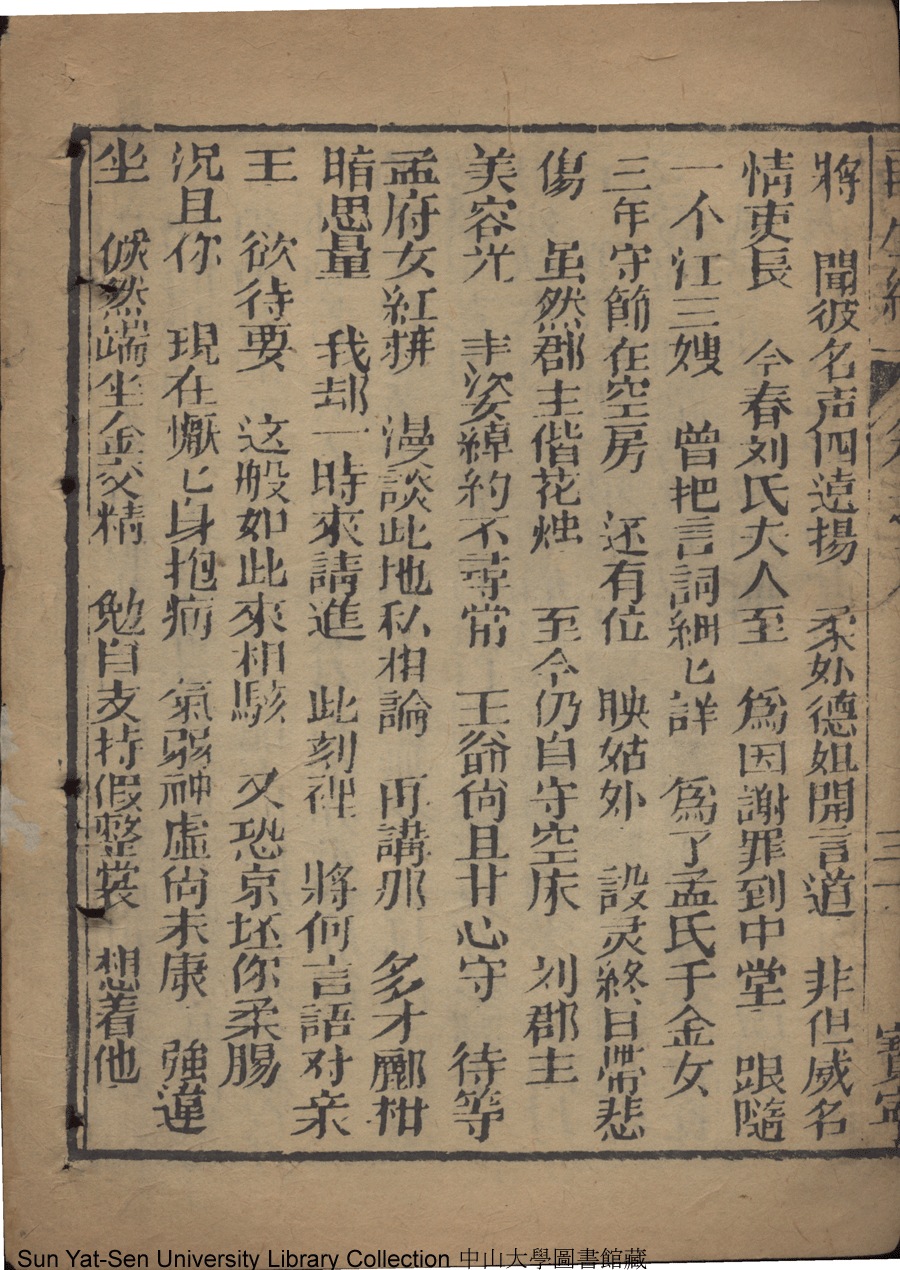 再生緣
三一
寳寧
將　聞彼名声四遠揚　柔娘德姐開言道　非但威名
情更長　今春刘氏夫人至　爲因謝罪到中堂　跟隨
一个江三嫂　曾把言詞細匕詳　爲了孟氏千金女
三年守節在空房　还有位　映姑娘　設灵終日常悲
傷　虽然郡主偕花烛　至今仍自守空床　刘郡主
美容光　丰姿綽約不尋常　王爺尙且甘心守　待等
孟府女紅粧　漫談此地私相論　再講那　多才酈相
暗思量　我却一時來請進　此刻裡　將何言語对亲
王　欲待要　这般如此來相駭　又恐京坯你柔腸
况且你　現在懨匕身抱病　氣弱神虛尙未康　強違
坐　倏然端坐金交精　勉自支持假整裳　想着他
Sun Yat-Sen University Library Collection 中山大學圖書館藏